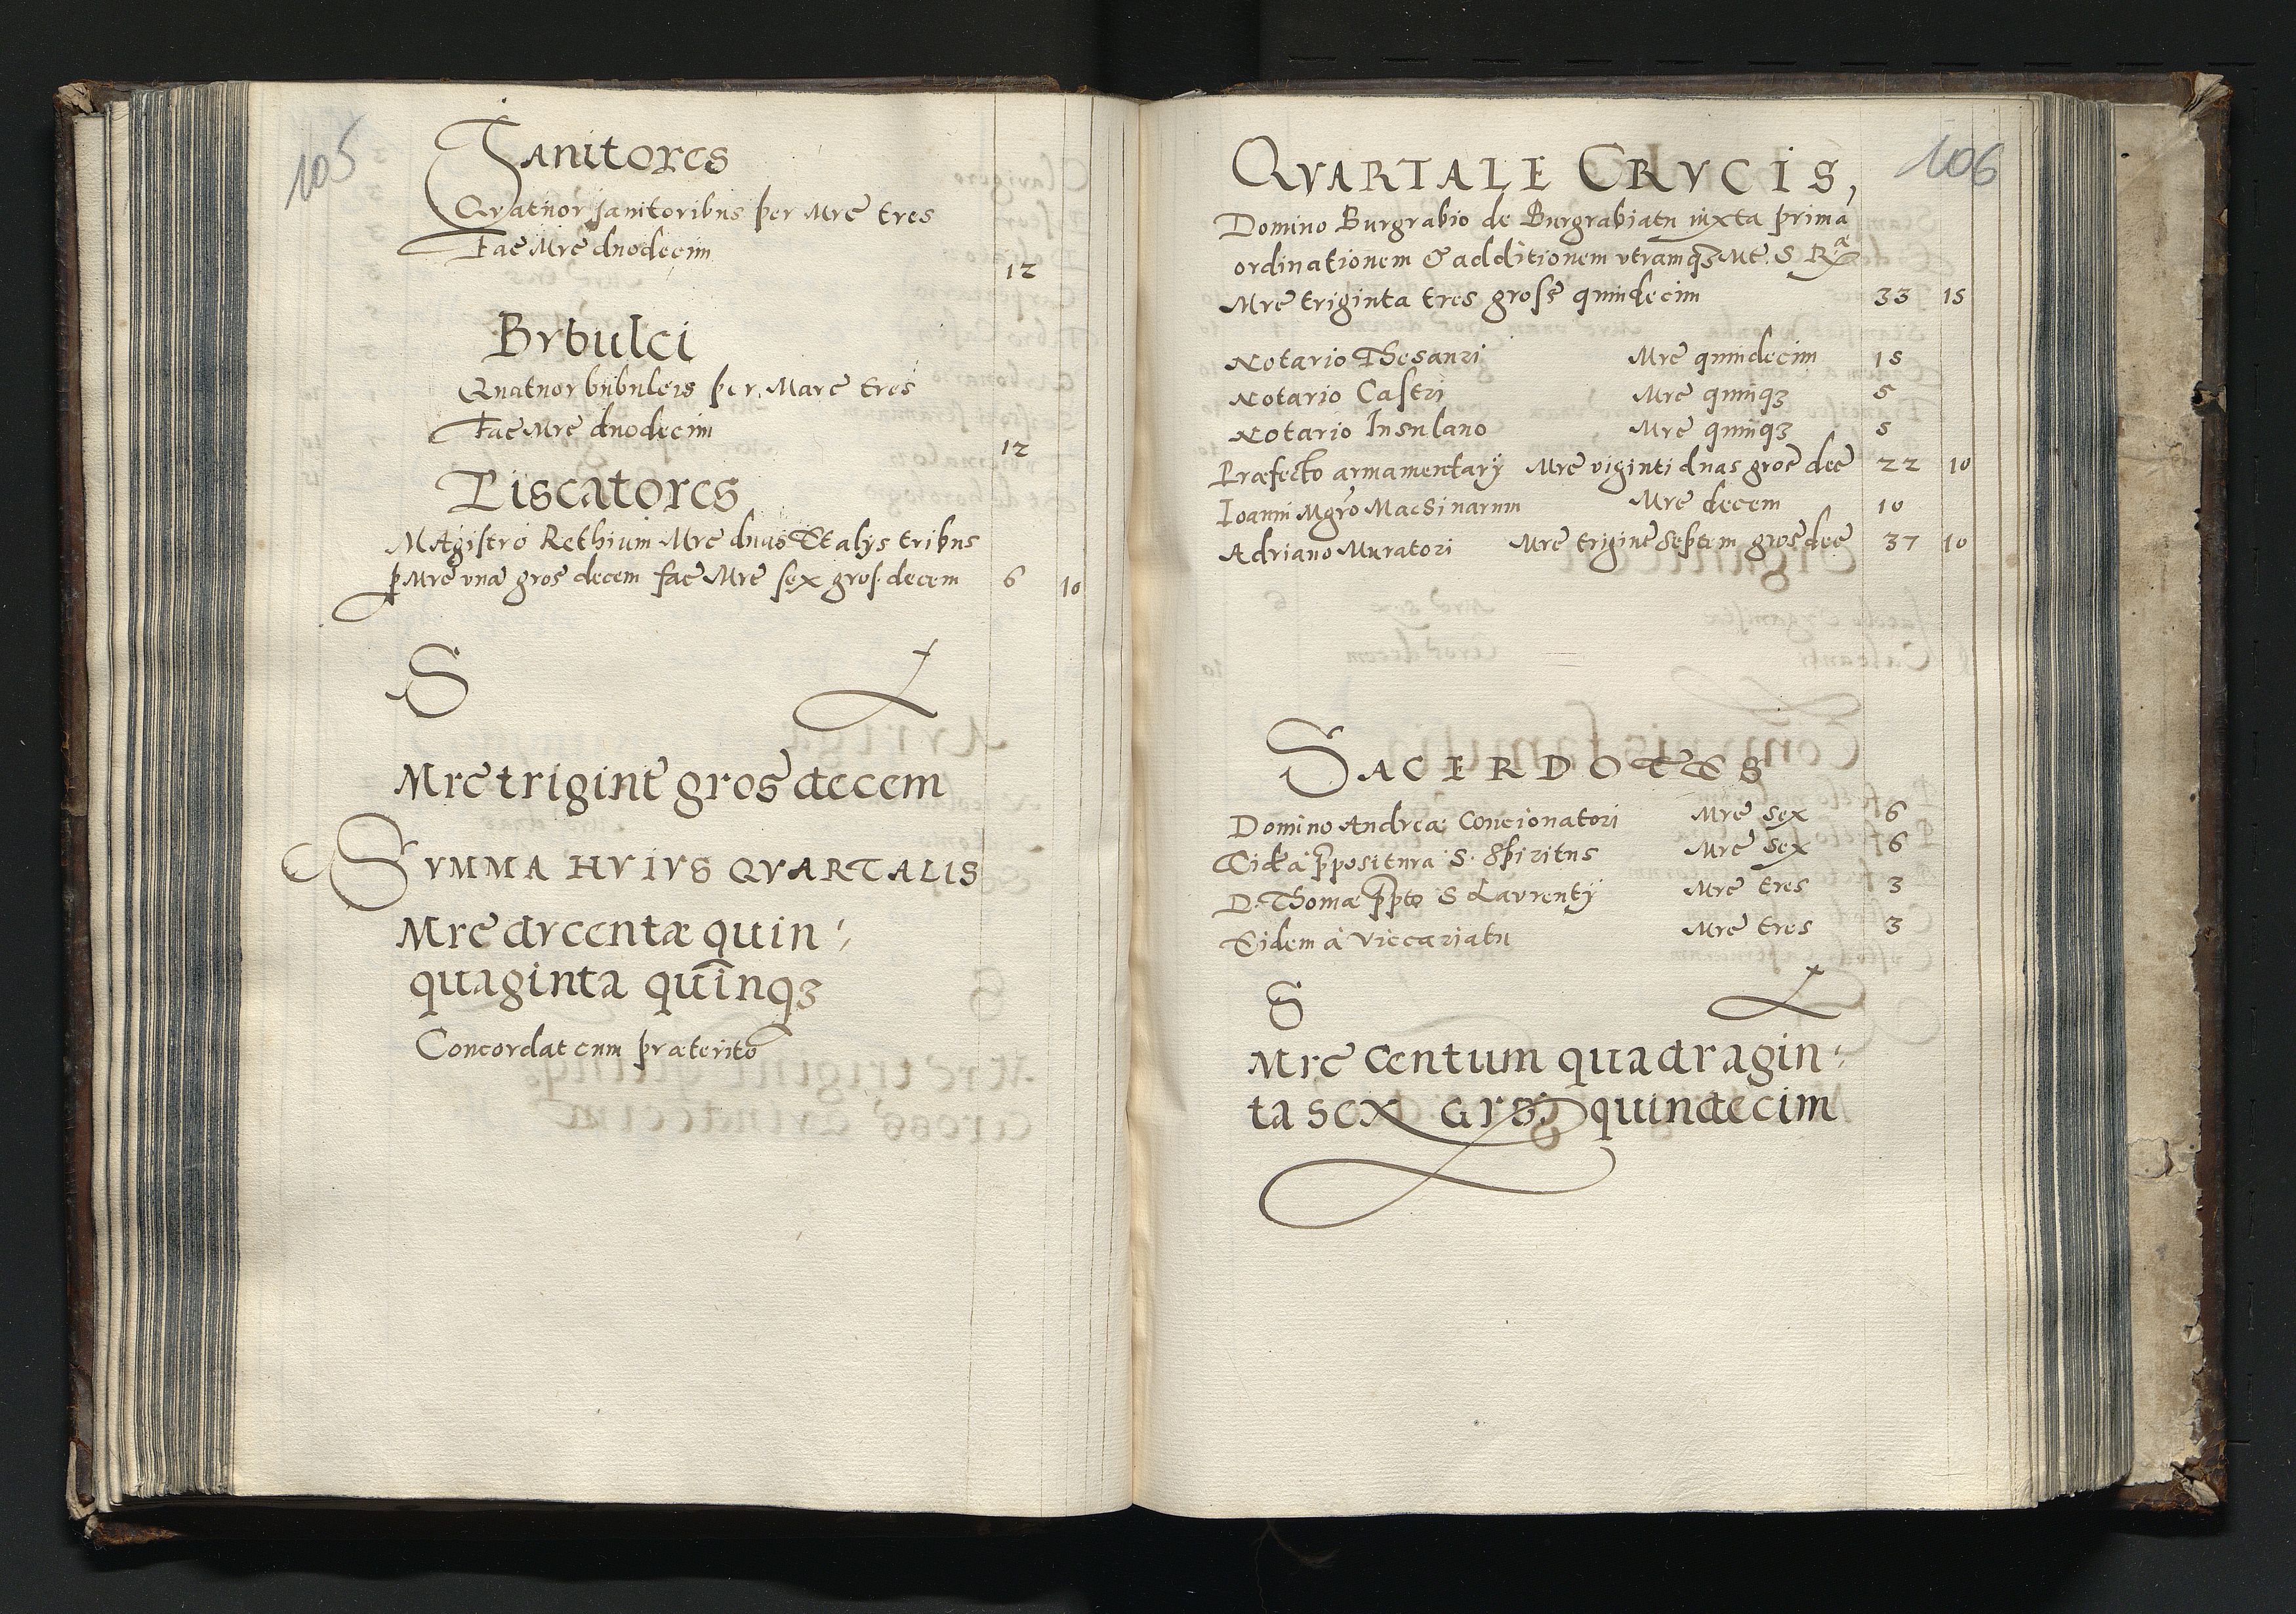 105
Janitores
Quatuor Janitoribus per Mrc tres
Fac Mrc duodecim 12
Bubulci
Quatuor bubulcis per Marc tres
Fac Mrc duodecim 12
Piscatores
Magistro Rethium Mrc duas Et alijs tribus
p Mrc una gros decem fac Mrc sex gros. decem 6 10
S L
Mrc trigint gros decem
SVMMA HVIVS QVARTALIS
Mrc ducentæ quin
quaginta quinqʒ
Concordat cum præterito
106
QVARTALE CRVCIS,
Domino Burgrabio de Burgrabiatu iuxta primā
ordinationem & additionem vtramqʒ Mt. S. R.
Mrc triginta tres gross quindecim 33 15
Notario Thesauri Mrc quindecim 15
Notario Castri Mrc quinqʒ 5
Notario Insulano Mrc quinqʒ 5
Præfecto armamentarij Mrc viginti duas gros dec 22 10
Ioanni Mgro Macsinarum Mrc decem 10
Adriano Muratori Mrc trigint septem gros dec 37 10
SACERDOTES
Domino Andreæ Concionatori Mrc sex 6
Eidē à ppositura S. Spiritus Mrc sex 6
D. Thomæ ppto S Laurentij Mrc tres 3
Eidem à Viccariatu Mrc tres 3
S L
Mrc Centum quadragin
ta sex Gros quindecim